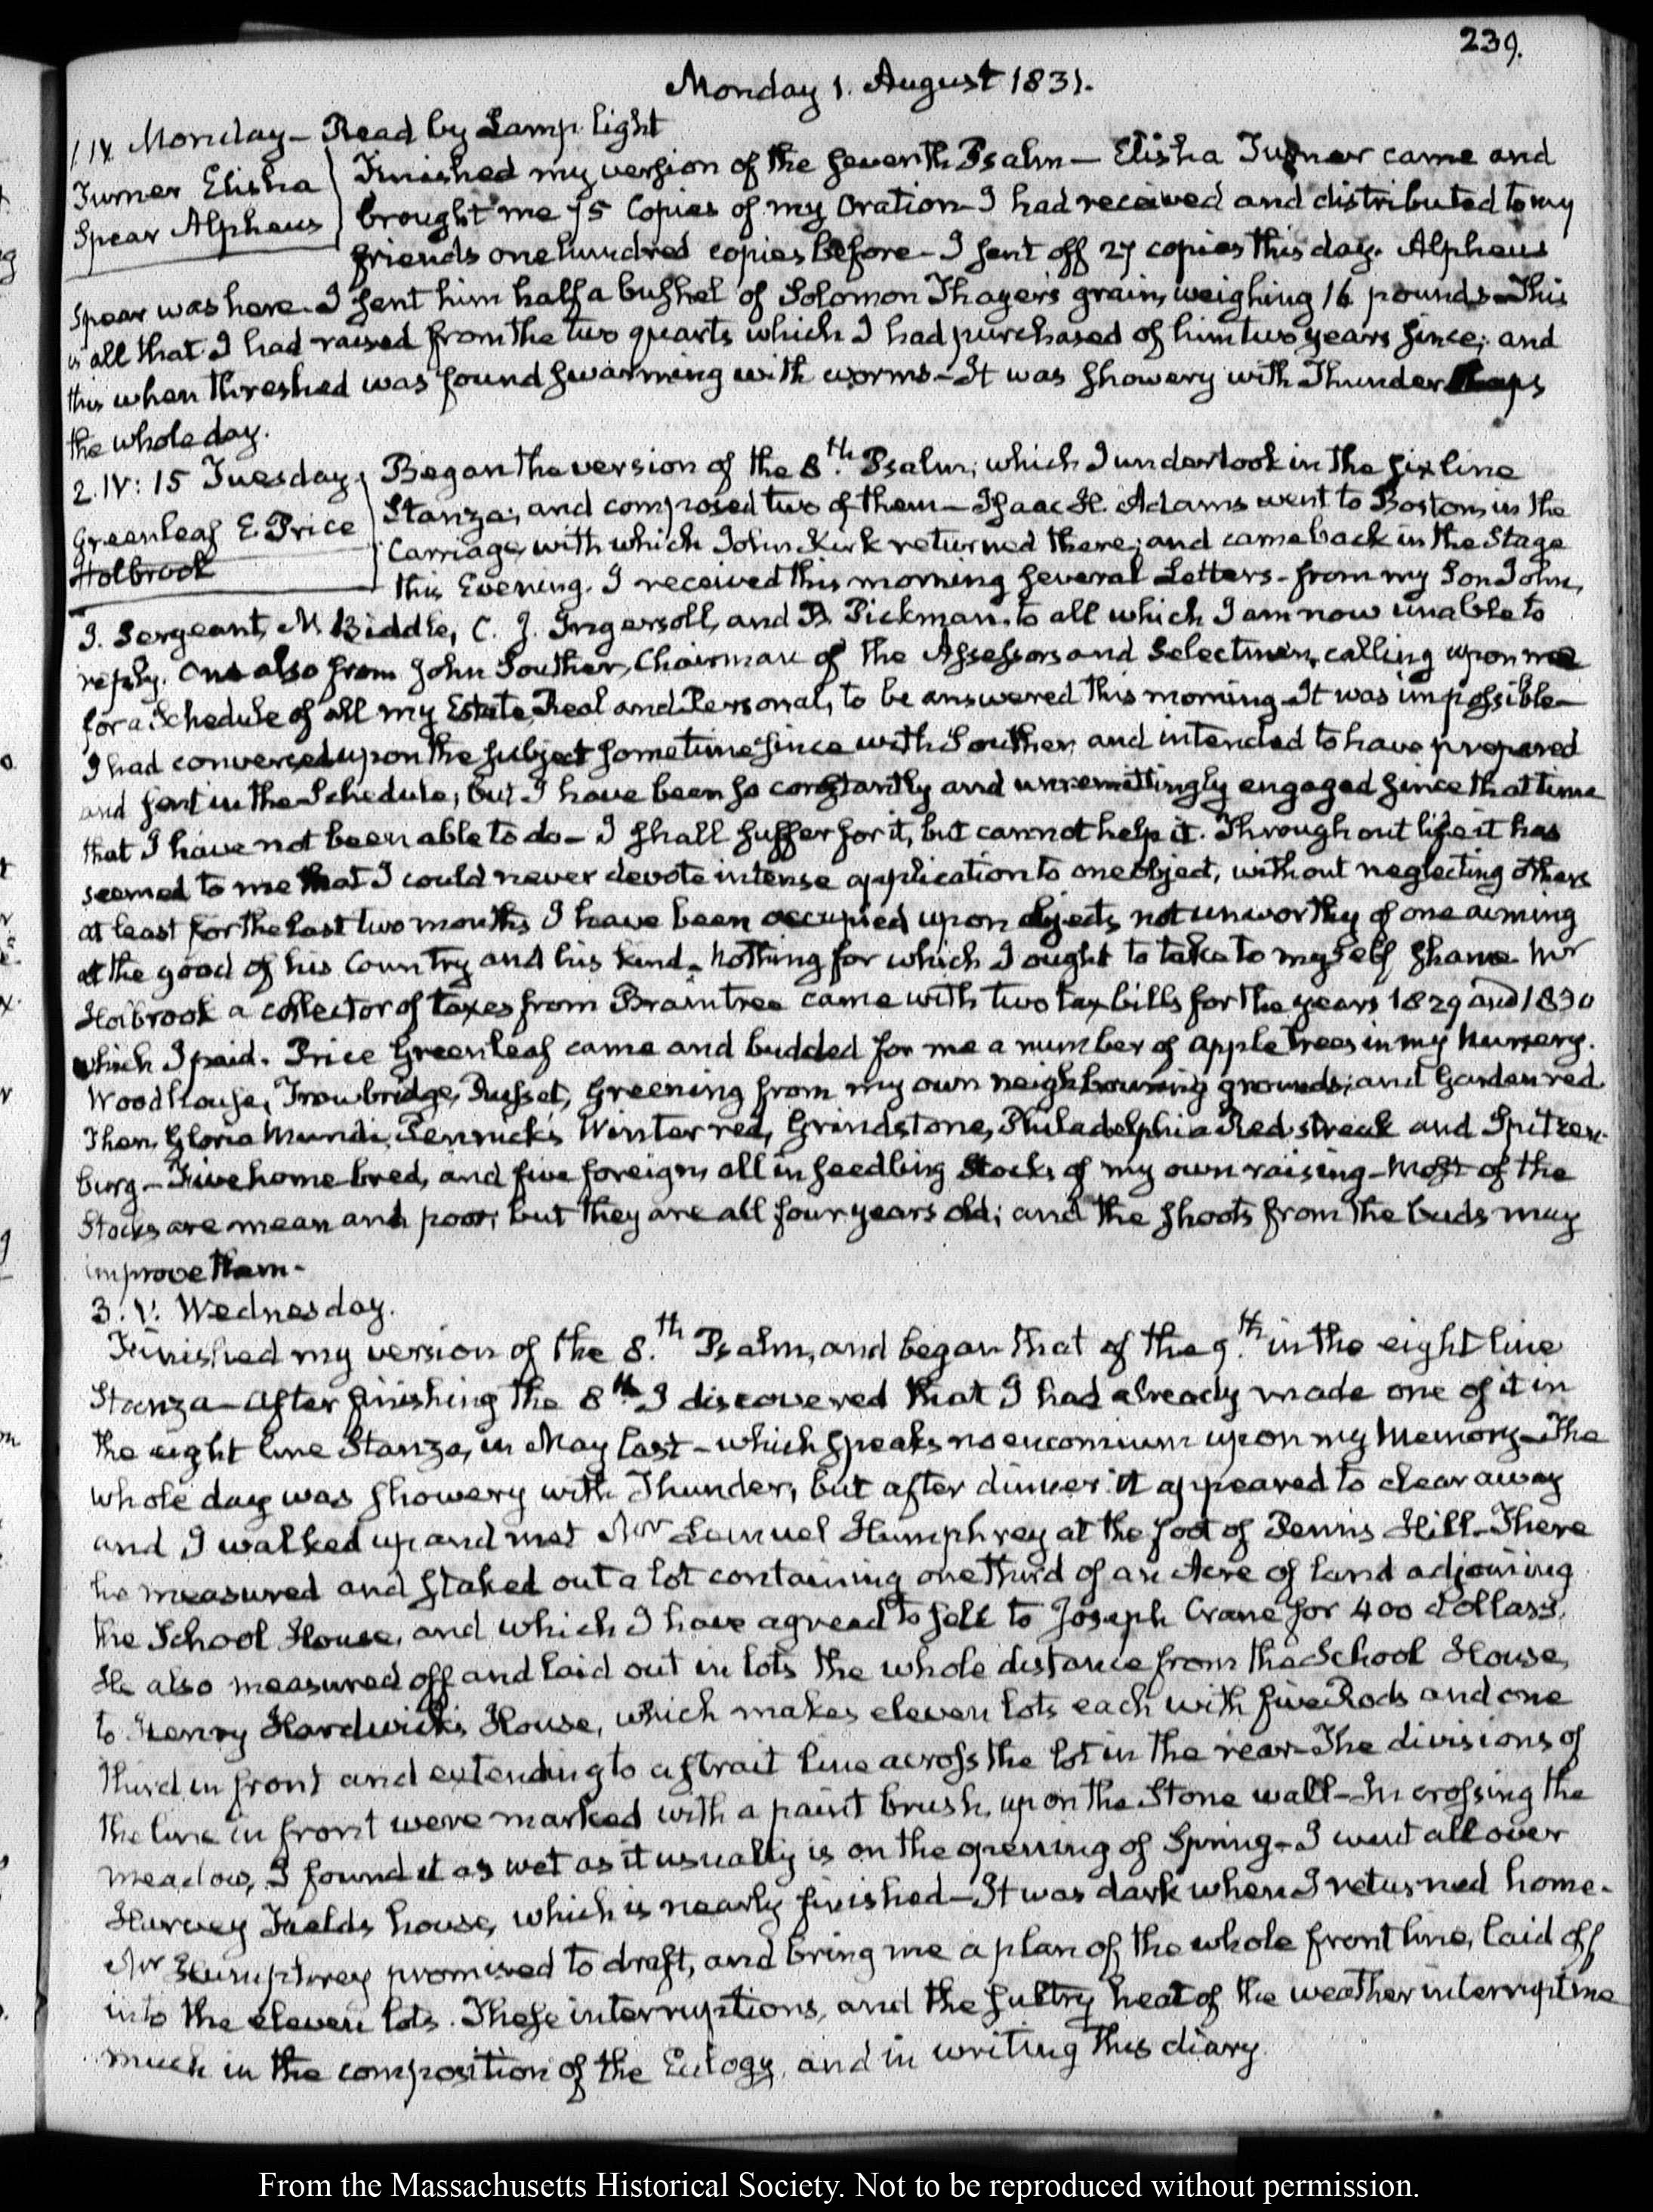 239.
Monday 1. August 1831.
1. IV. Monday — Read by Lamp light
Turner Elisha
Spear Alpheus
Finished my version of the seventh Psalm — Elisha Turner came and
brought me 75 Copies of my Oration — I had received and distributed to my
friends one hundred copies before — I sent off 27 copies this day. Alpheus
Spear was here. I sent him half a bushel of Solomon Thayer's grain, weighing 16 pounds — This
is all that I had raised from the two quarts which I had purchased of him two years since; and
this when threshed was found swarming with worms — It was showery with Thunder
the whole day.
2. IV: 15 Tuesday.
Greenleaf E. Price
Holbrook
Began the version of the 8.th Psalm; which I undertook in the six line
Stanza; and composed two of them — Isaac H. Adams went to Boston, in the
Carriage, with which John Kirk returned there; and came back in the Stage
this Evening. I received this morning several Letters — from my Son John,
J. Sergeant, N. Biddle, C. J. Ingersoll, and B. Pickman, to all which I am now unable to
reply. One also from John Souther, Chairman of the Assessors and Selectmen, calling upon me
for a Schedule of all my Estate, Real and Personal, to be answered this morning — It was impossible —
I had conversed upon the subject sometime since with Souther, and intended to have prepared
and sent in the Schedule; but I have been so constantly and unremittingly engaged since that time
that I have not been able to do — I shall suffer for it, but cannot help it. Throughout life it has
seemed to me that I could never devote intense application to one object, without neglecting others
at least for the last two months I have been occupied upon objects not unworthy of one aiming
at the good of his Country and his kind — Nothing for which I ought to take to myself shame. Mr
Holbrook a collector of taxes from Braintree came with two tax bills for the years 1829 and 1830
which I paid. Price Greenleaf came and budded for me a number of apple trees in my Nursery.
Woodhouse, Trowbridge, Russet, Greening from my own neighbouring grounds; and Garden red.
Then, Gloria Mundi, Pennick's Winter red, Grindstone, Philadelphia Redstreak and Spitzen-
burg — Five home bred, and five foreign, all in seedling Stocks of my own raising — Most of the
Stocks are mean and poor; but they are all four years old; and the shoots from the buds may
improve them —
3. V. Wednesday.
Finished my version of the 8.th Psalm, and began that of the 9.th in the eight line
Stanza — After finishing the 8th I discovered that I had already made one of it in
the eight line Stanza, in May last — which speaks no encomium upon my Memory — The
whole day was showery with Thunder, but after dinner it appeared to clear away
and I walked up and met Mr Lemuel Humphrey at the foot of Penns Hill — There
he measured and staked out a lot containing one third of an Acre of land adjoining
the School House, and which I have agreed to sell to Joseph Crane for 400 dollars.
He also measured off and laid out in lots the whole distance from the School House,
to Henry Hardwick's House, which makes eleven lots each with five Rods and one
third in front and extending to a strait line across the lot in the rear — The divisions of
the line in front were marked with a paint brush, upon the Stone wall — In crossing the
meadow, I found it as wet as it usually is on the opening of Spring — I went all over
Harvey Fields house, which is nearly finished — It was dark when I returned home.
Mr Humphrey promised to draft, and bring me a plan of the whole front line, laid off
into the eleven lots. These interruptions, and the sultry heat of the weather interrupt me
much in the composition of the Eulogy, and in writing this diary.
From the Massachusetts Historical Society. Not to be reproduced without permission.